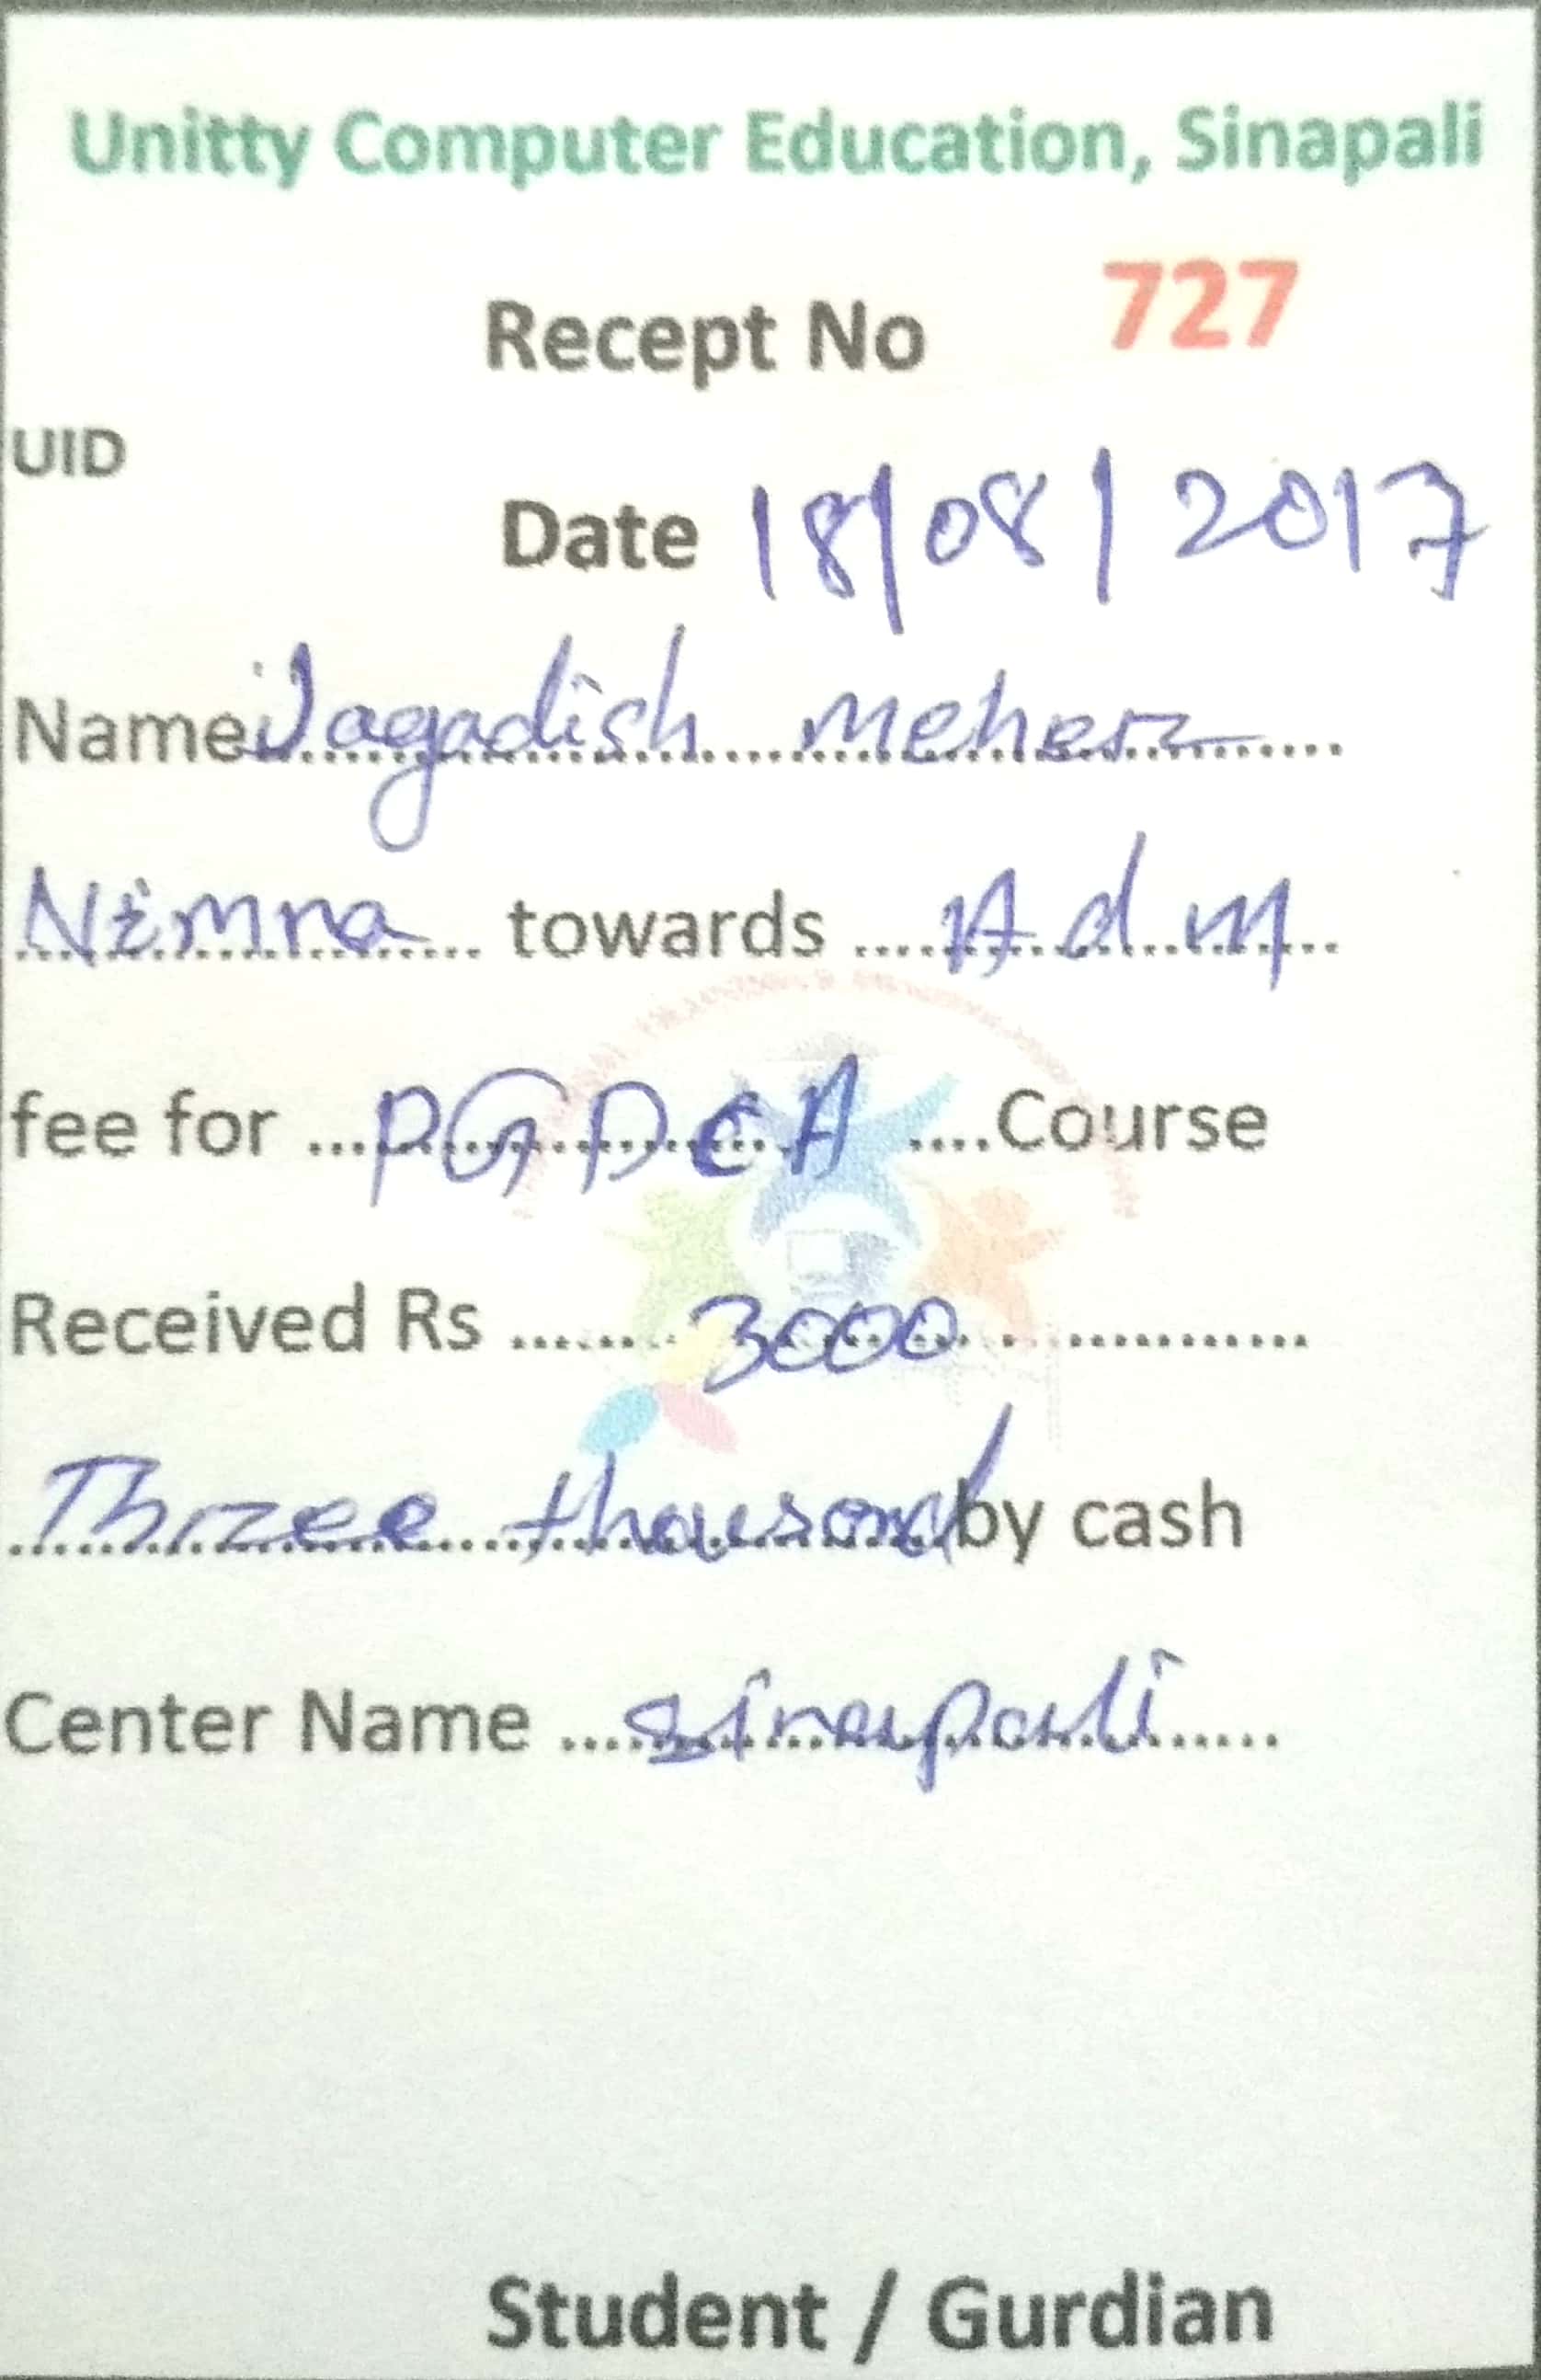 Unitty Computer Education, Sinapali
Recept No 727
UID
Date 18/08/2017
Name Jagadish Meher
Nimna towards Adm
fee for PGDCA Course
Received Rs 3000
Three thousand by cash
Center Name Sinapali
Student / Gurdian